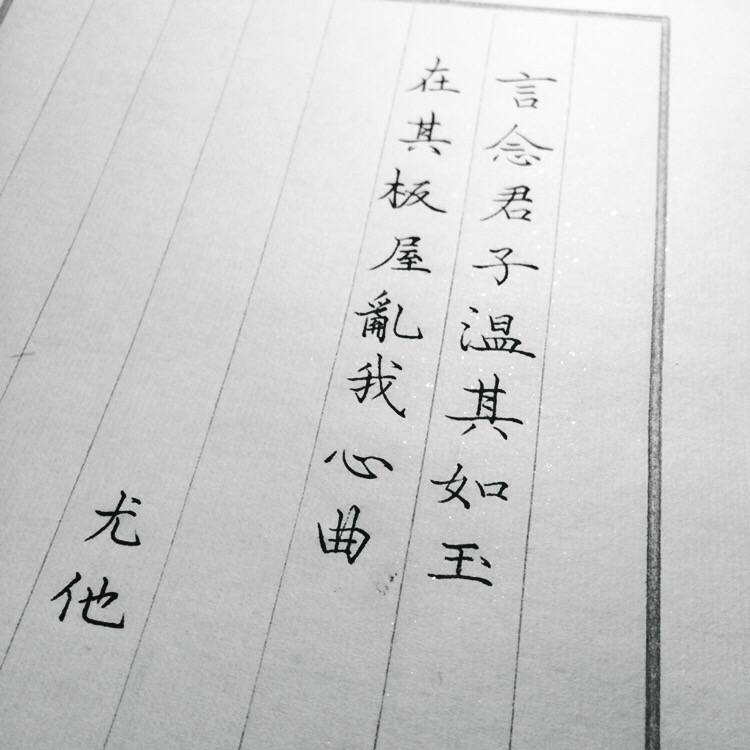 言念君子温其如玉
在其板屋亂我心曲
尤他